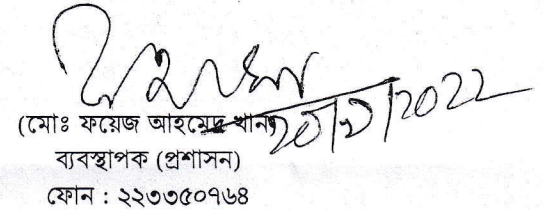 (মোঃ ফয়েজ আহমেদ খান)
ব্যবস্থাপক (প্রশাসন)
ফোন : ২২৩৩৫০৭৬৪